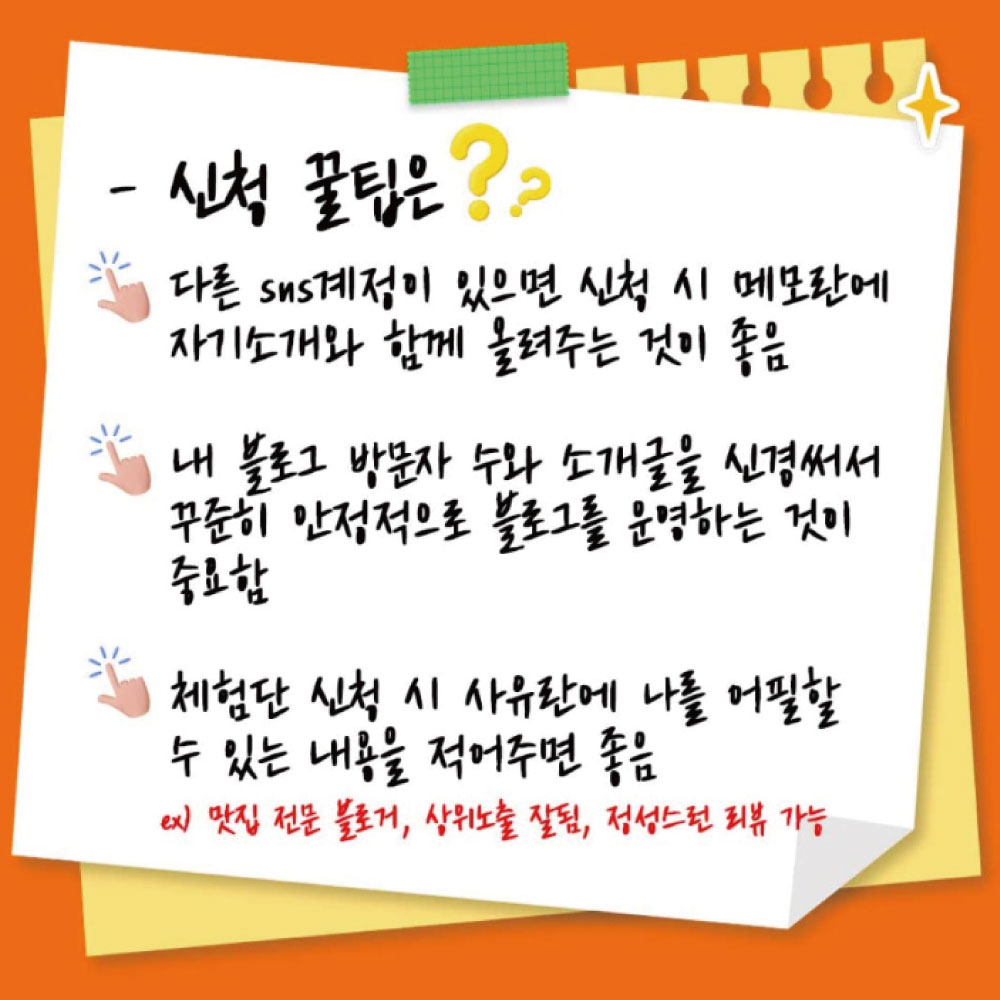 - 신청 꿀팁은??
다른 sns계정이 있으면 신청 시 메모란에
자기소개와 함께 올려주는 것이 좋음
내 블로그 방문자 수와 소개글을 신경써서
꾸준히 안정적으로 블로그를 운영하는 것이
중요함
체험단 신청 시 사유란에 나를 어필할
수 있는 내용을 적어주면 좋음
ex) 맛집 전문 블로거, 상위노출 잘됨, 정성스런 리뷰 가능